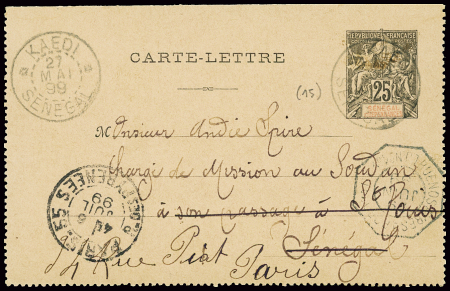 KAEDI
27
MAI
99
SENEGAL
CARTE-LETTRE
REPUBLIQUE FRANCAISE
25
(15)
Monsieur André Spire
Chargé de Mission au Soudan
à son passage à St Louis
Sénégal
14 Rue
Paris
PARIS 55
99